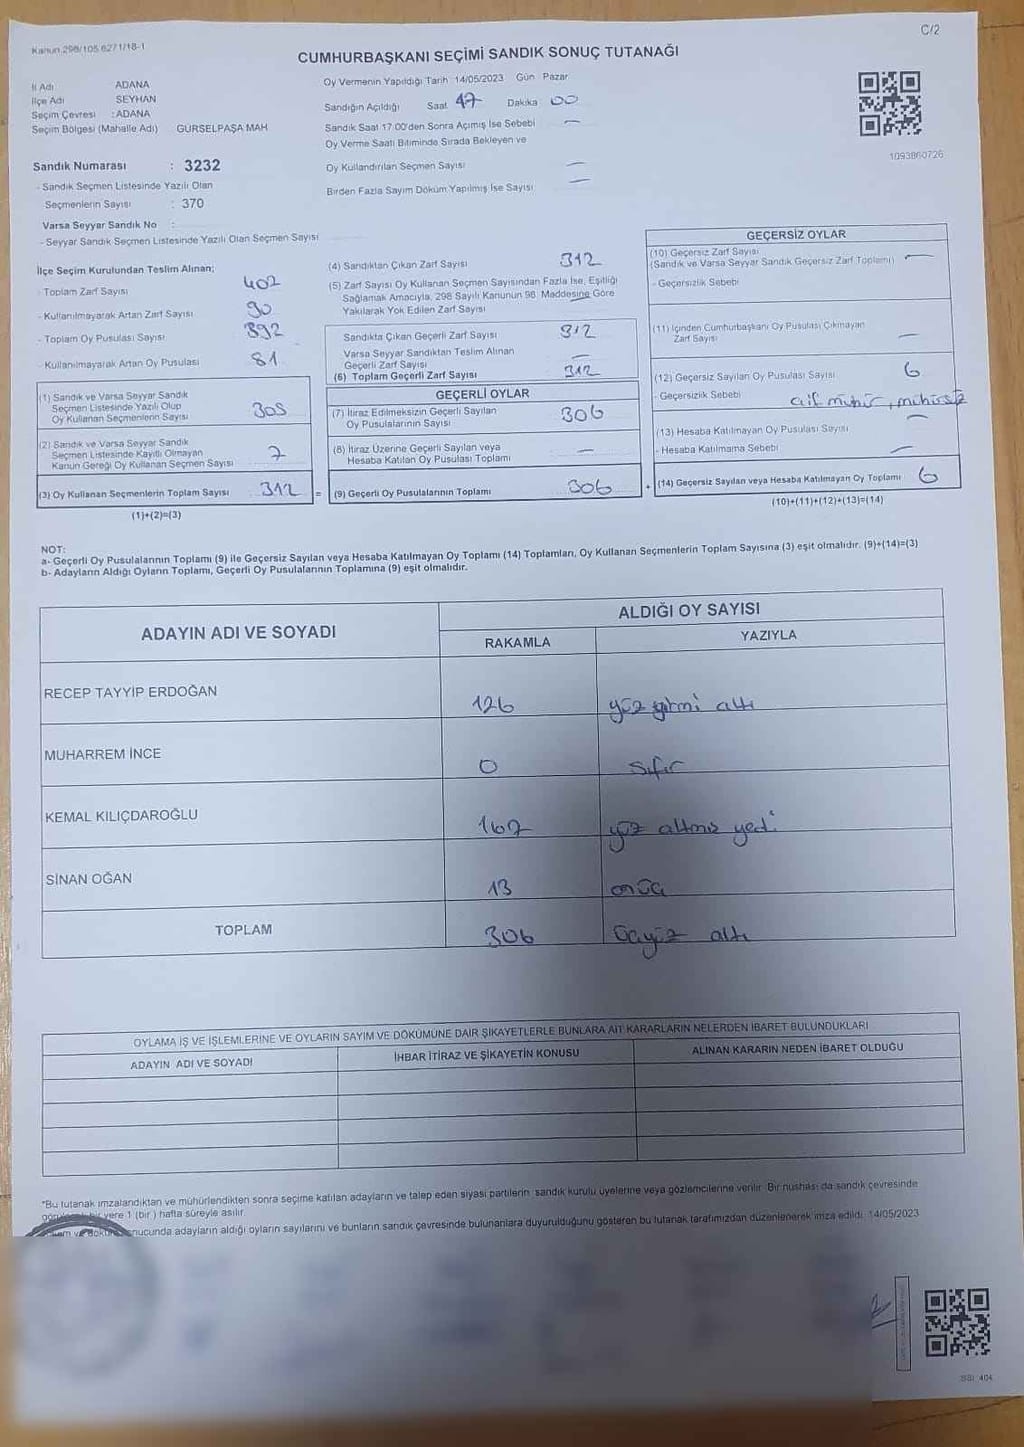 Kanun 298/105,6271/18-1
C/2
CUMHURBAŞKANI SEÇİMİ SANDIK SONUÇ TUTANAĞI
İl Adı ADANA
İlçe Adı SEYHAN
Seçim Çevresi : ADANA
Seçim Bölgesi (Mahalle Adı) GÜRSELPAŞA MAH
Sandık Numarası : 3232
- Sandık Seçmen Listesinde Yazılı Olan
Seçmenlerin Sayısı : 370
Varsa Seyyar Sandık No :
- Seyyar Sandık Seçmen Listesinde Yazılı Olan Seçmen Sayısı
Oy Vermenin Yapıldığı Tarih 14/05/2023 Gün Pazar
Sandığın Açıldığı Saat 17 Dakika 00
Sandık Saat 17.00'den Sonra Açımış İse Sebebi —
Oy Verme Saati Bitiminde Sırada Bekleyen ve
Oy Kullandırılan Seçmen Sayısı —
Birden Fazla Sayım Döküm Yapılmış İse Sayısı —
1093860726
İlçe Seçim Kurulundan Teslim Alınan;
- Toplam Zarf Sayısı 402
- Kullanılmayarak Artan Zarf Sayısı 90
- Toplam Oy Pusulası Sayısı 392
- Kullanılmayarak Artan Oy Pusulası 81
(1) Sandık ve Varsa Seyyar Sandık
Seçmen Listesinde Yazılı Olup
Oy Kullanan Seçmenlerin Sayısı 305
(2) Sandık ve Varsa Seyyar Sandık
Seçmen Listesinde Kayıtlı Olmayan
Kanun Gereği Oy Kullanan Seçmen Sayısı 7
(3) Oy Kullanan Seçmenlerin Toplam Sayısı 312 =
(1)+(2)=(3)
(4) Sandıktan Çıkan Zarf Sayısı 312
(5) Zarf Sayısı Oy Kullanan Seçmen Sayısından Fazla İse, Eşitliği
Sağlamak Amacıyla, 298 Sayılı Kanunun 98. Maddesine Göre
Yakılarak Yok Edilen Zarf Sayısı —
Sandıkta Çıkan Geçerli Zarf Sayısı 312
Varsa Seyyar Sandıktan Teslim Alınan
Geçerli Zarf Sayısı —
(6) Toplam Geçerli Zarf Sayısı 312
GEÇERLİ OYLAR
(7) İtiraz Edilmeksizin Geçerli Sayılan
Oy Pusulalarının Sayısı 306
(8) İtiraz Üzerine Geçerli Sayılan veya
Hesaba Katılan Oy Pusulası Toplamı —
(9) Geçerli Oy Pusulalarının Toplamı 306 +
GEÇERSİZ OYLAR
(10) Geçersiz Zarf Sayısı
(Sandık ve Varsa Seyyar Sandık Geçersiz Zarf Toplamı) —
- Geçersizlik Sebebi
(11) İçinden Cumhurbaşkanı Oy Pusulası Çıkmayan
Zarf Sayısı —
(12) Geçersiz Sayılan Oy Pusulası Sayısı 6
- Geçersizlik Sebebi çift mühür, mühürsüz
(13) Hesaba Katılmayan Oy Pusulası Sayısı —
- Hesaba Katılmama Sebebi —
(14) Geçersiz Sayılan veya Hesaba Katılmayan Oy Toplamı 6
(10)+(11)+(12)+(13)=(14)
NOT:
a- Geçerli Oy Pusulalarının Toplamı (9) ile Geçersiz Sayılan veya Hesaba Katılmayan Oy Toplamı (14) Toplamları, Oy Kullanan Seçmenlerin Toplam Sayısına (3) eşit olmalıdır. (9)+(14)=(3)
b- Adayların Aldığı Oyların Toplamı, Geçerli Oy Pusulalarının Toplamına (9) eşit olmalıdır.
ADAYIN ADI VE SOYADI
ALDIĞI OY SAYISI
RAKAMLA YAZIYLA
RECEP TAYYİP ERDOĞAN 126 yüz yirmi altı
MUHARREM İNCE 0 sıfır
KEMAL KILIÇDAROĞLU 167 yüz altmış yedi
SİNAN OĞAN 13 onüç
TOPLAM 306 üçyüz altı
OYLAMA İŞ VE İŞLEMLERİNE VE OYLARIN SAYIM VE DÖKÜMÜNE DAİR ŞİKAYETLERLE BUNLARA AİT KARARLARIN NELERDEN İBARET BULUNDUKLARI
ADAYIN ADI VE SOYADI İHBAR İTİRAZ VE ŞİKAYETİN KONUSU ALINAN KARARIN NEDEN İBARET OLDUĞU
*Bu tutanak imzalandıktan ve mühürlendikten sonra seçime katılan adayların ve talep eden siyasi partilerin sandık kurulu üyelerine veya gözlemcilerine verilir. Bir nüshası da sandık çevresinde
bir yere 1 (bir) hafta süreyle asılır.
sonucunda adayların aldığı oyların sayılarını ve bunların sandık çevresinde bulunanlara duyurulduğunu gösteren bu tutanak tarafımızdan düzenlenerek imza edildi. 14/05/2023
SSI 404